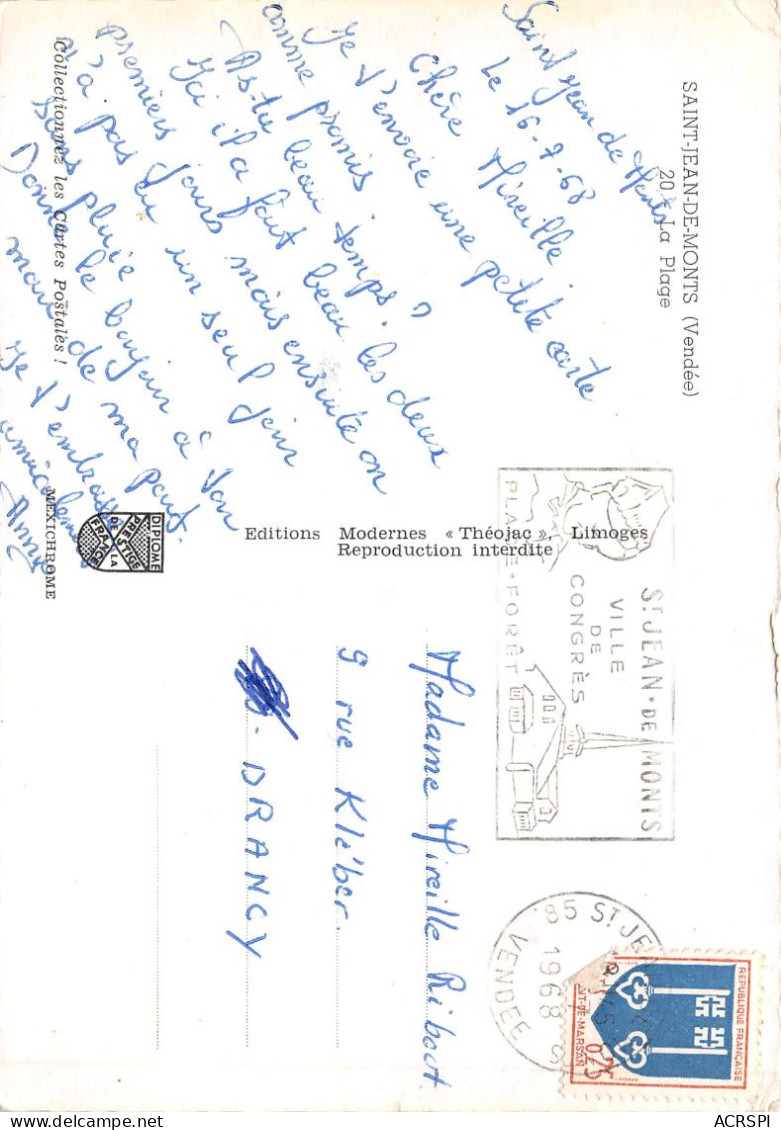 SAINT-JEAN-DE-MONTS (Vendée)
20 - La Plage
Saint Jean de Monts
Le 16-7-68
Chère Mireille
Je t'envoie une petite carte
comme promis.
As-tu beau temps ?
Ici il a fait beau les deux
premiers jours mais ensuite on
n'a pas eu un seul jour
sans pluie
Donne le bonjour à ton
mari de ma part.
Je t'embrasse
amicalement
Anny
Collectionnez les Cartes Postales !
MEXICHROME
DIPLOME
PRESTIGE
DE LA
FRANCE
Editions Modernes « Théojac », Limoges
Reproduction interdite
ST JEAN-DE-MONTS
VILLE
DE
CONGRÈS
PLAGE-FORÊT
85 ST JEAN
1968
VENDEE
REPUBLIQUE FRANÇAISE
0,25
MT-DE-MARSAN
Madame Mireille Ribot.
9 rue Kléber.
. DRANCY
ACRSPI